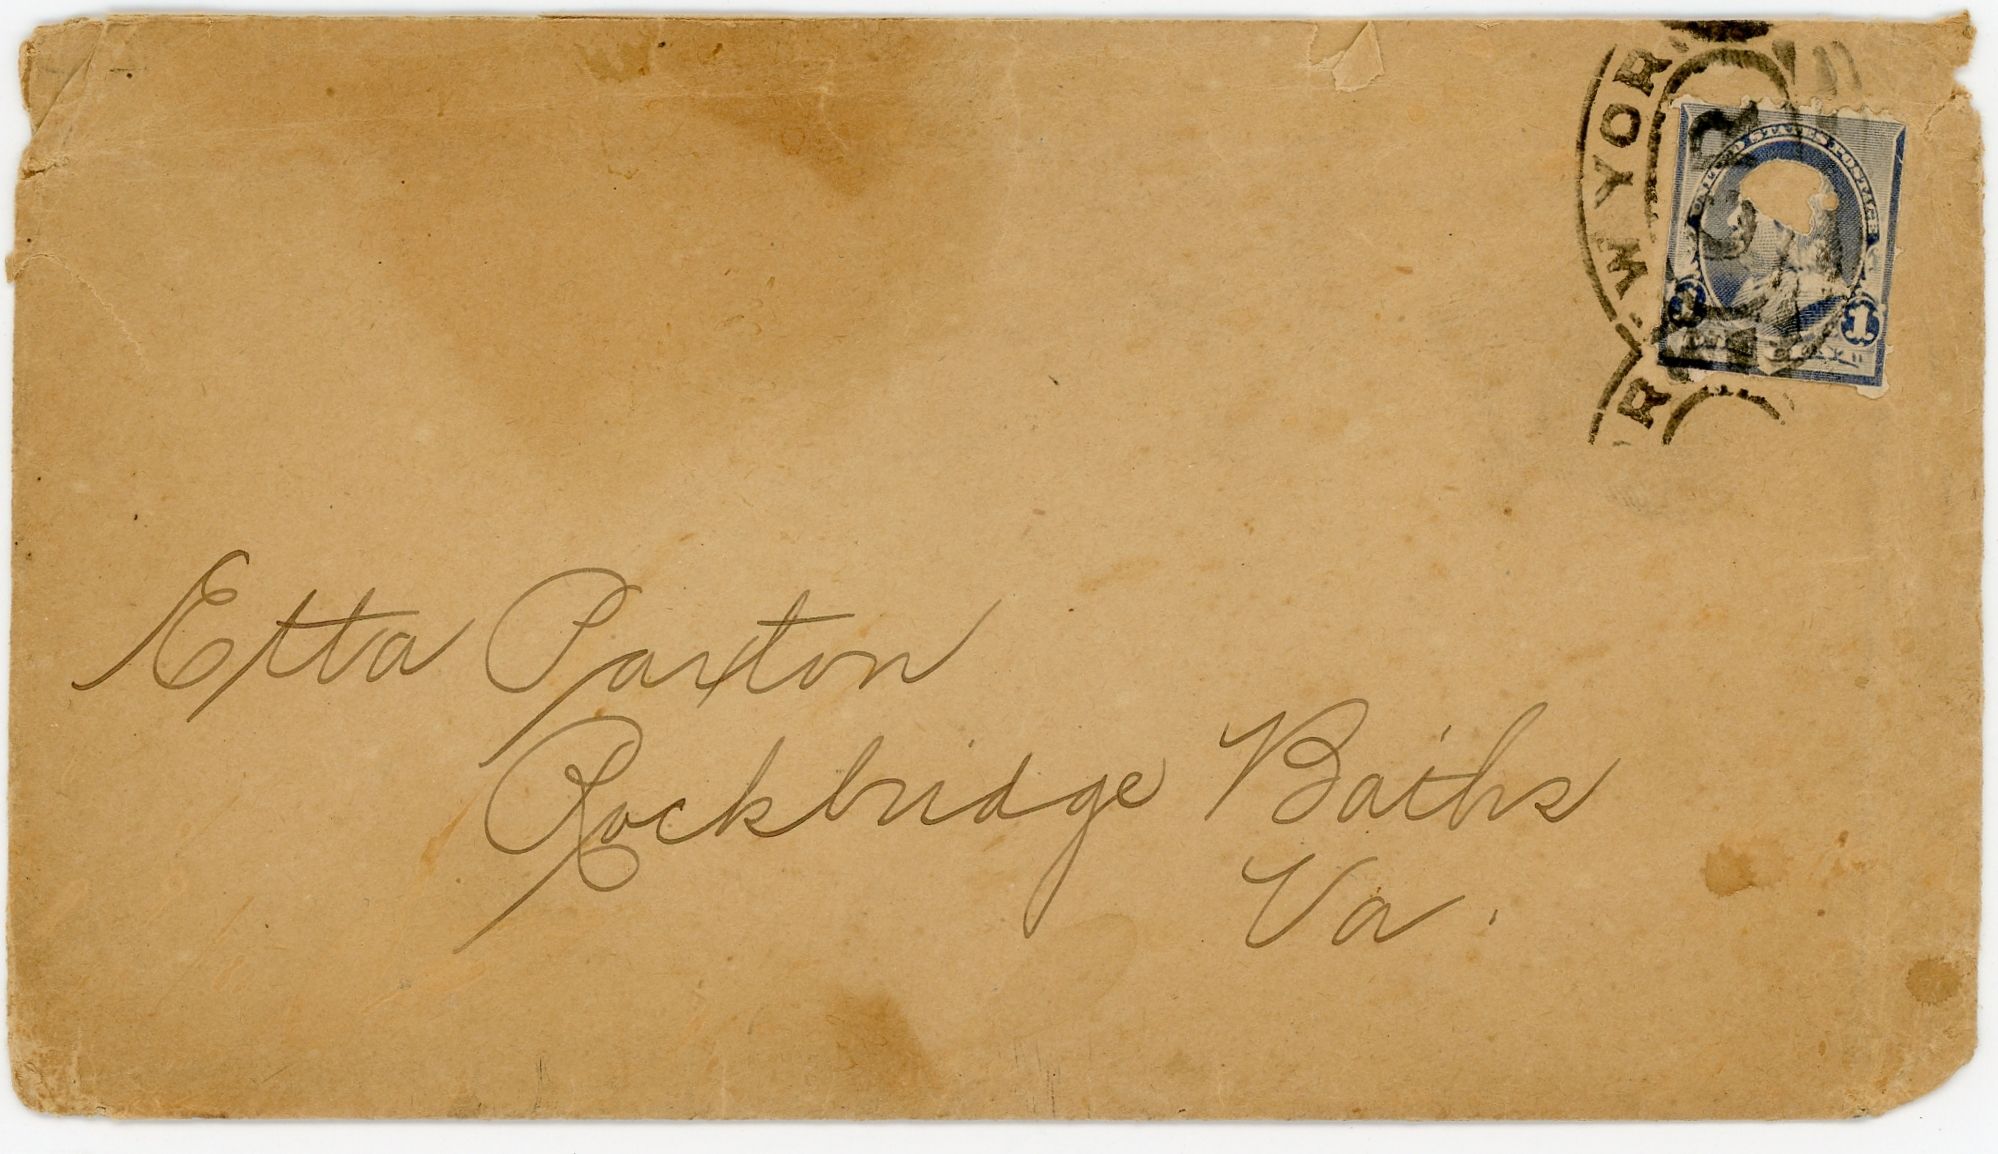 W YOR
UNITED STATES POSTAGE
1
Etta Paxton
Rockbridge Baths
Va.